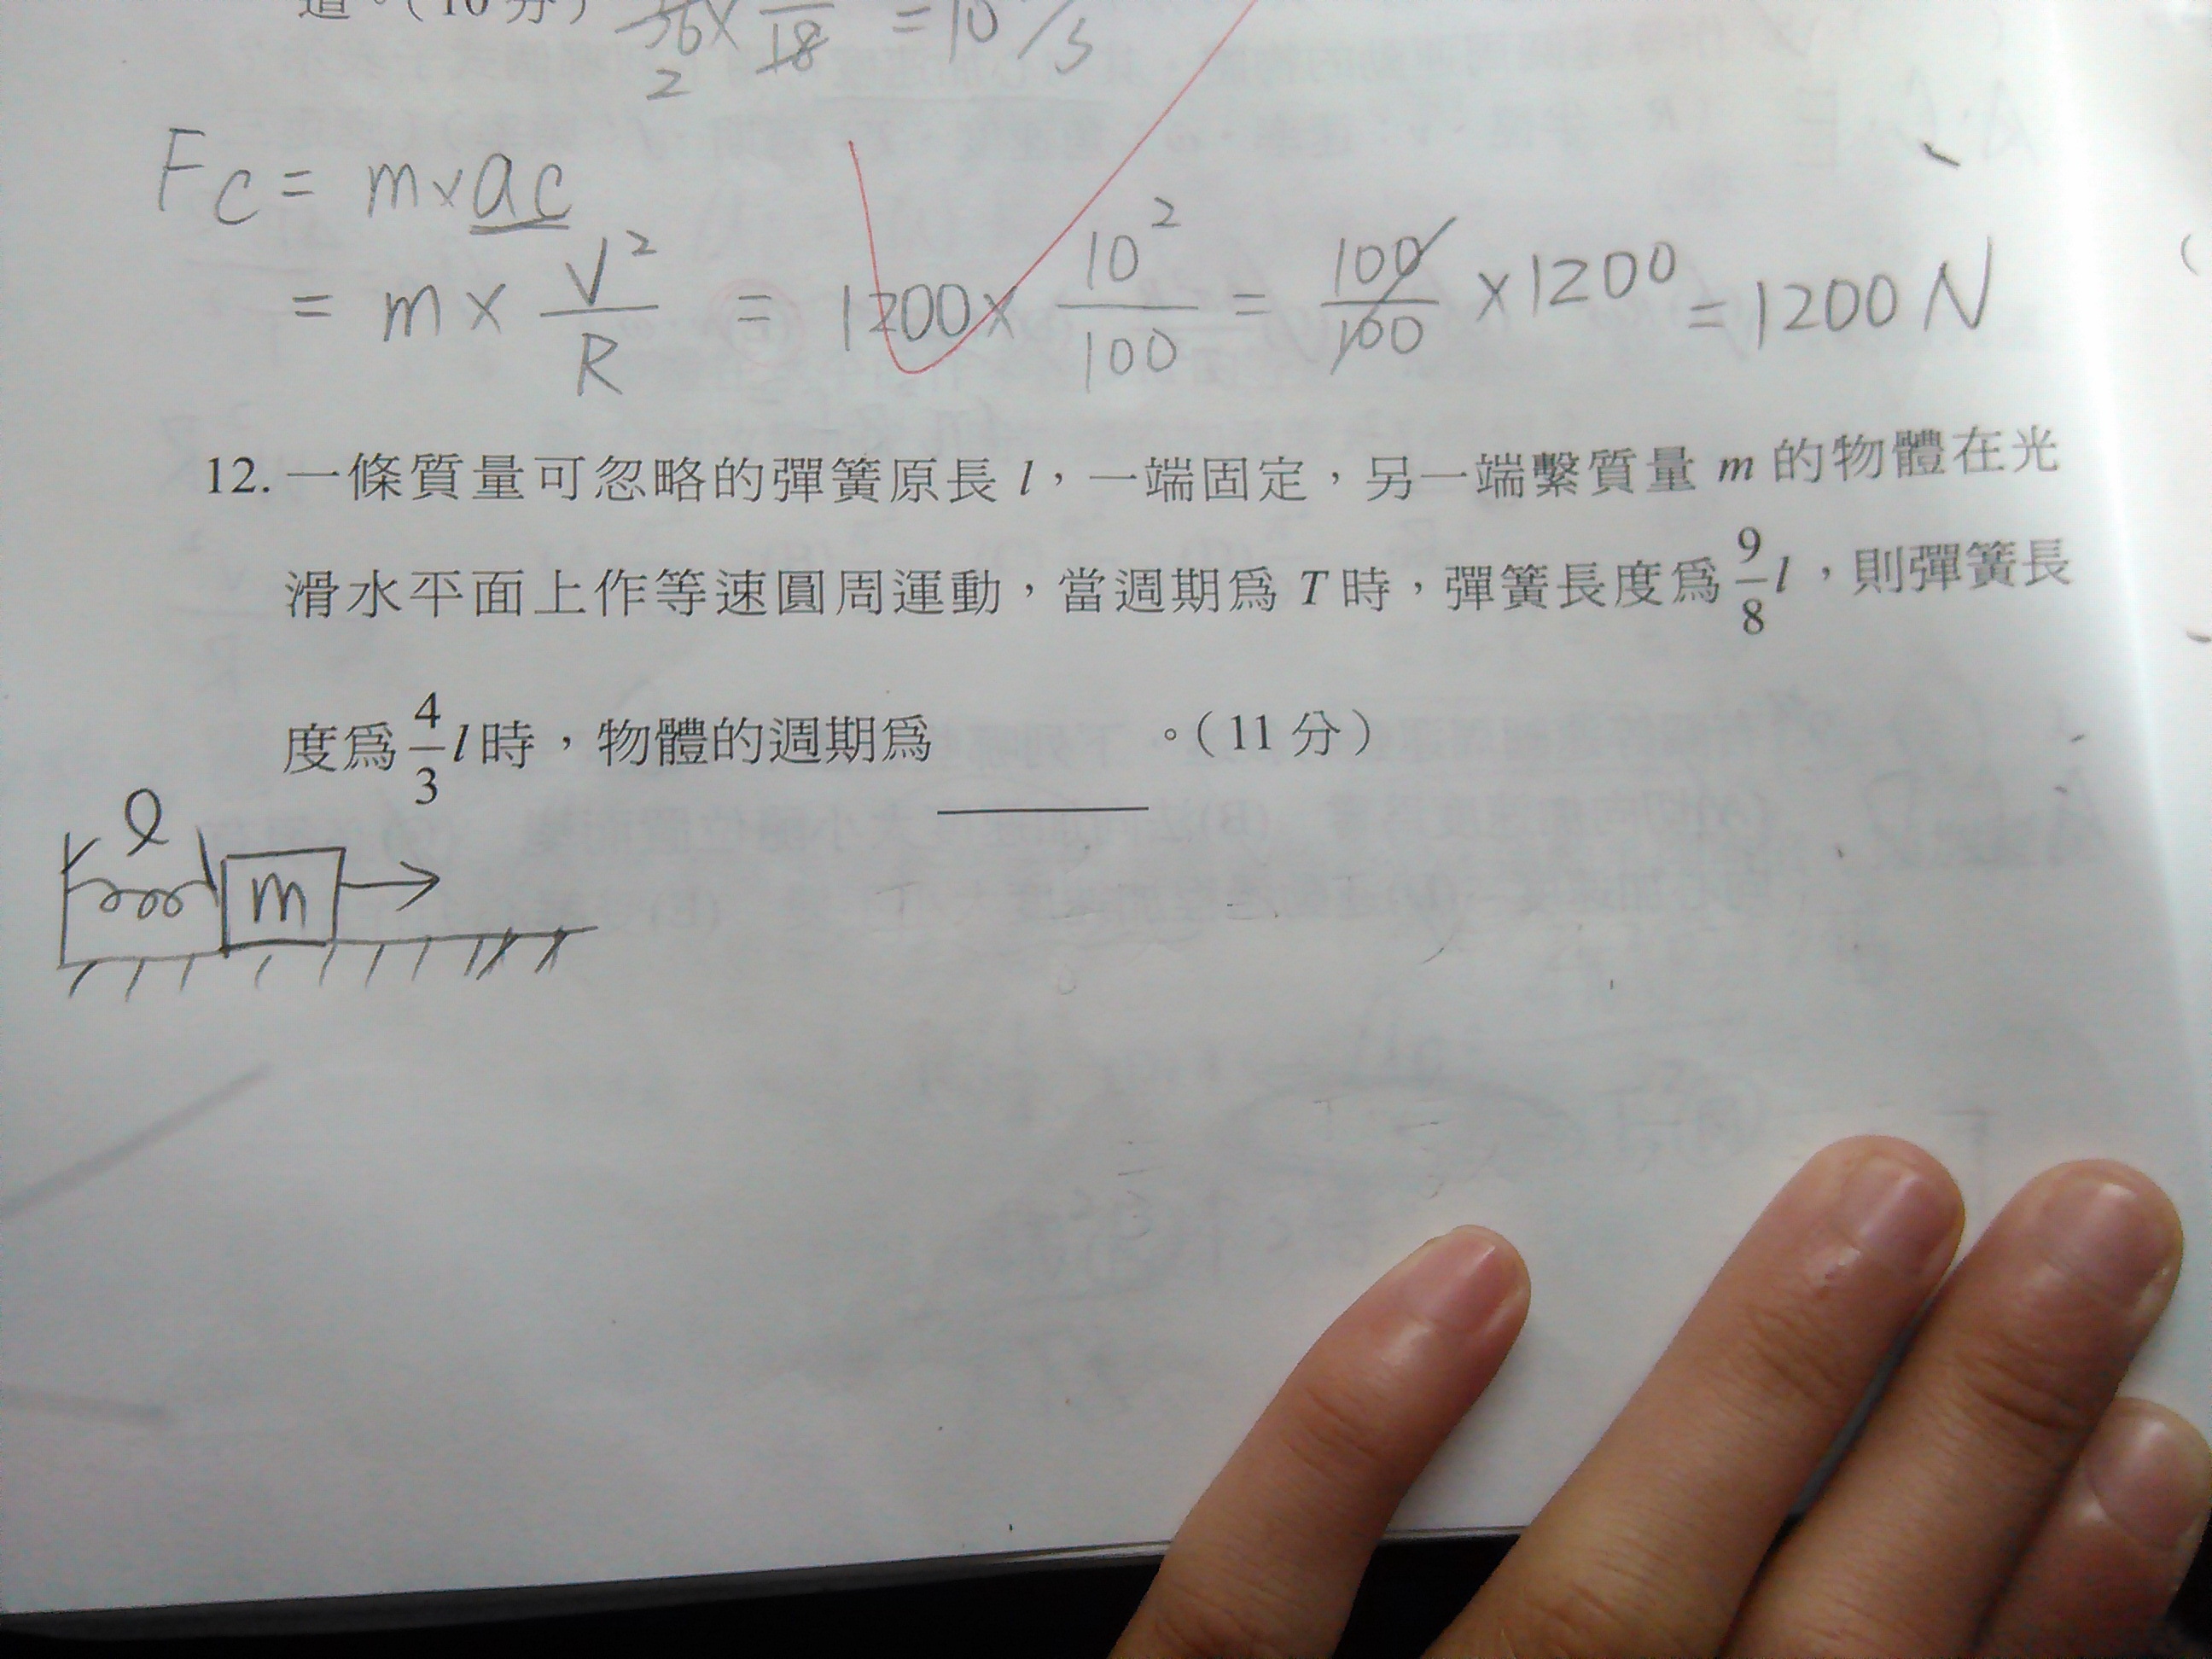 道。(10分) 36× /18 = 10 /s
2
Fc = m×ac
= m × V²/R = 1200× 10²/100 = 100/100 ×1200 = 1200 N
12. 一條質量可忽略的彈簧原長 l，一端固定，另一端繫質量 m 的物體在光
滑水平面上作等速圓周運動，當週期為 T 時，彈簧長度為 9/8 l，則彈簧長
度為 4/3 l 時，物體的週期為 。(11 分)
l
m